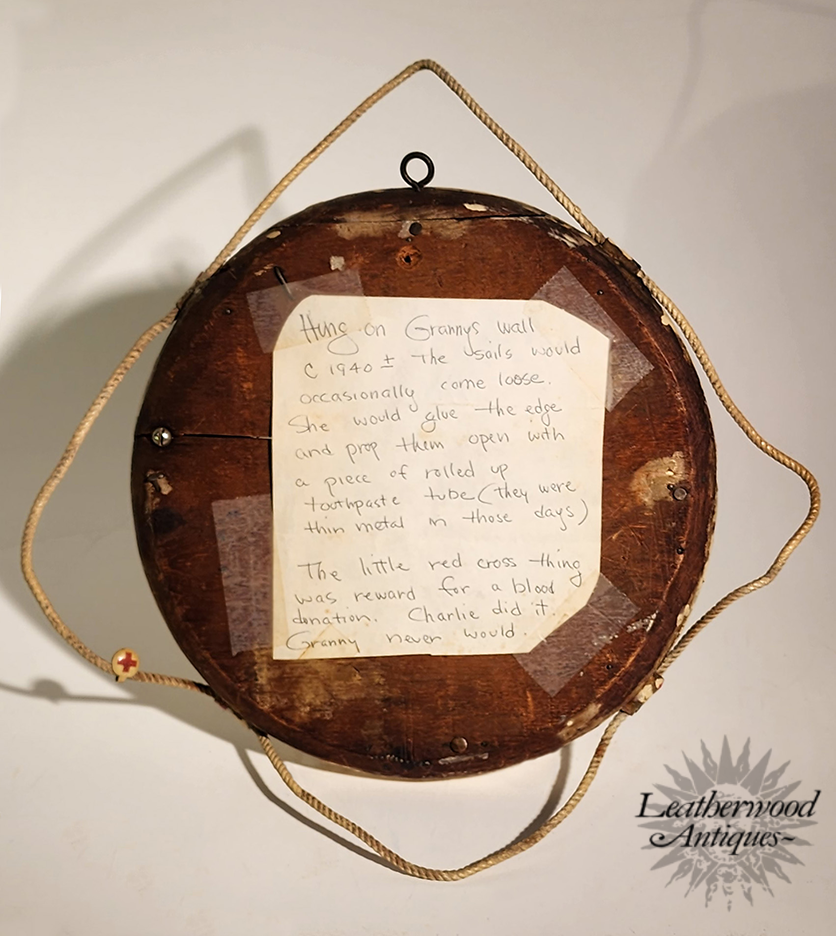 Hung on Grannys wall
C 1940 ± The sails would
occasionally come loose.
She would glue the edge
and prop them open with
a piece of rolled up
toothpaste tube (they were
thin metal in those days)
The little red cross thing
was reward for a blood
donation. Charlie did it.
Granny never would.
Leatherwood
Antiques~